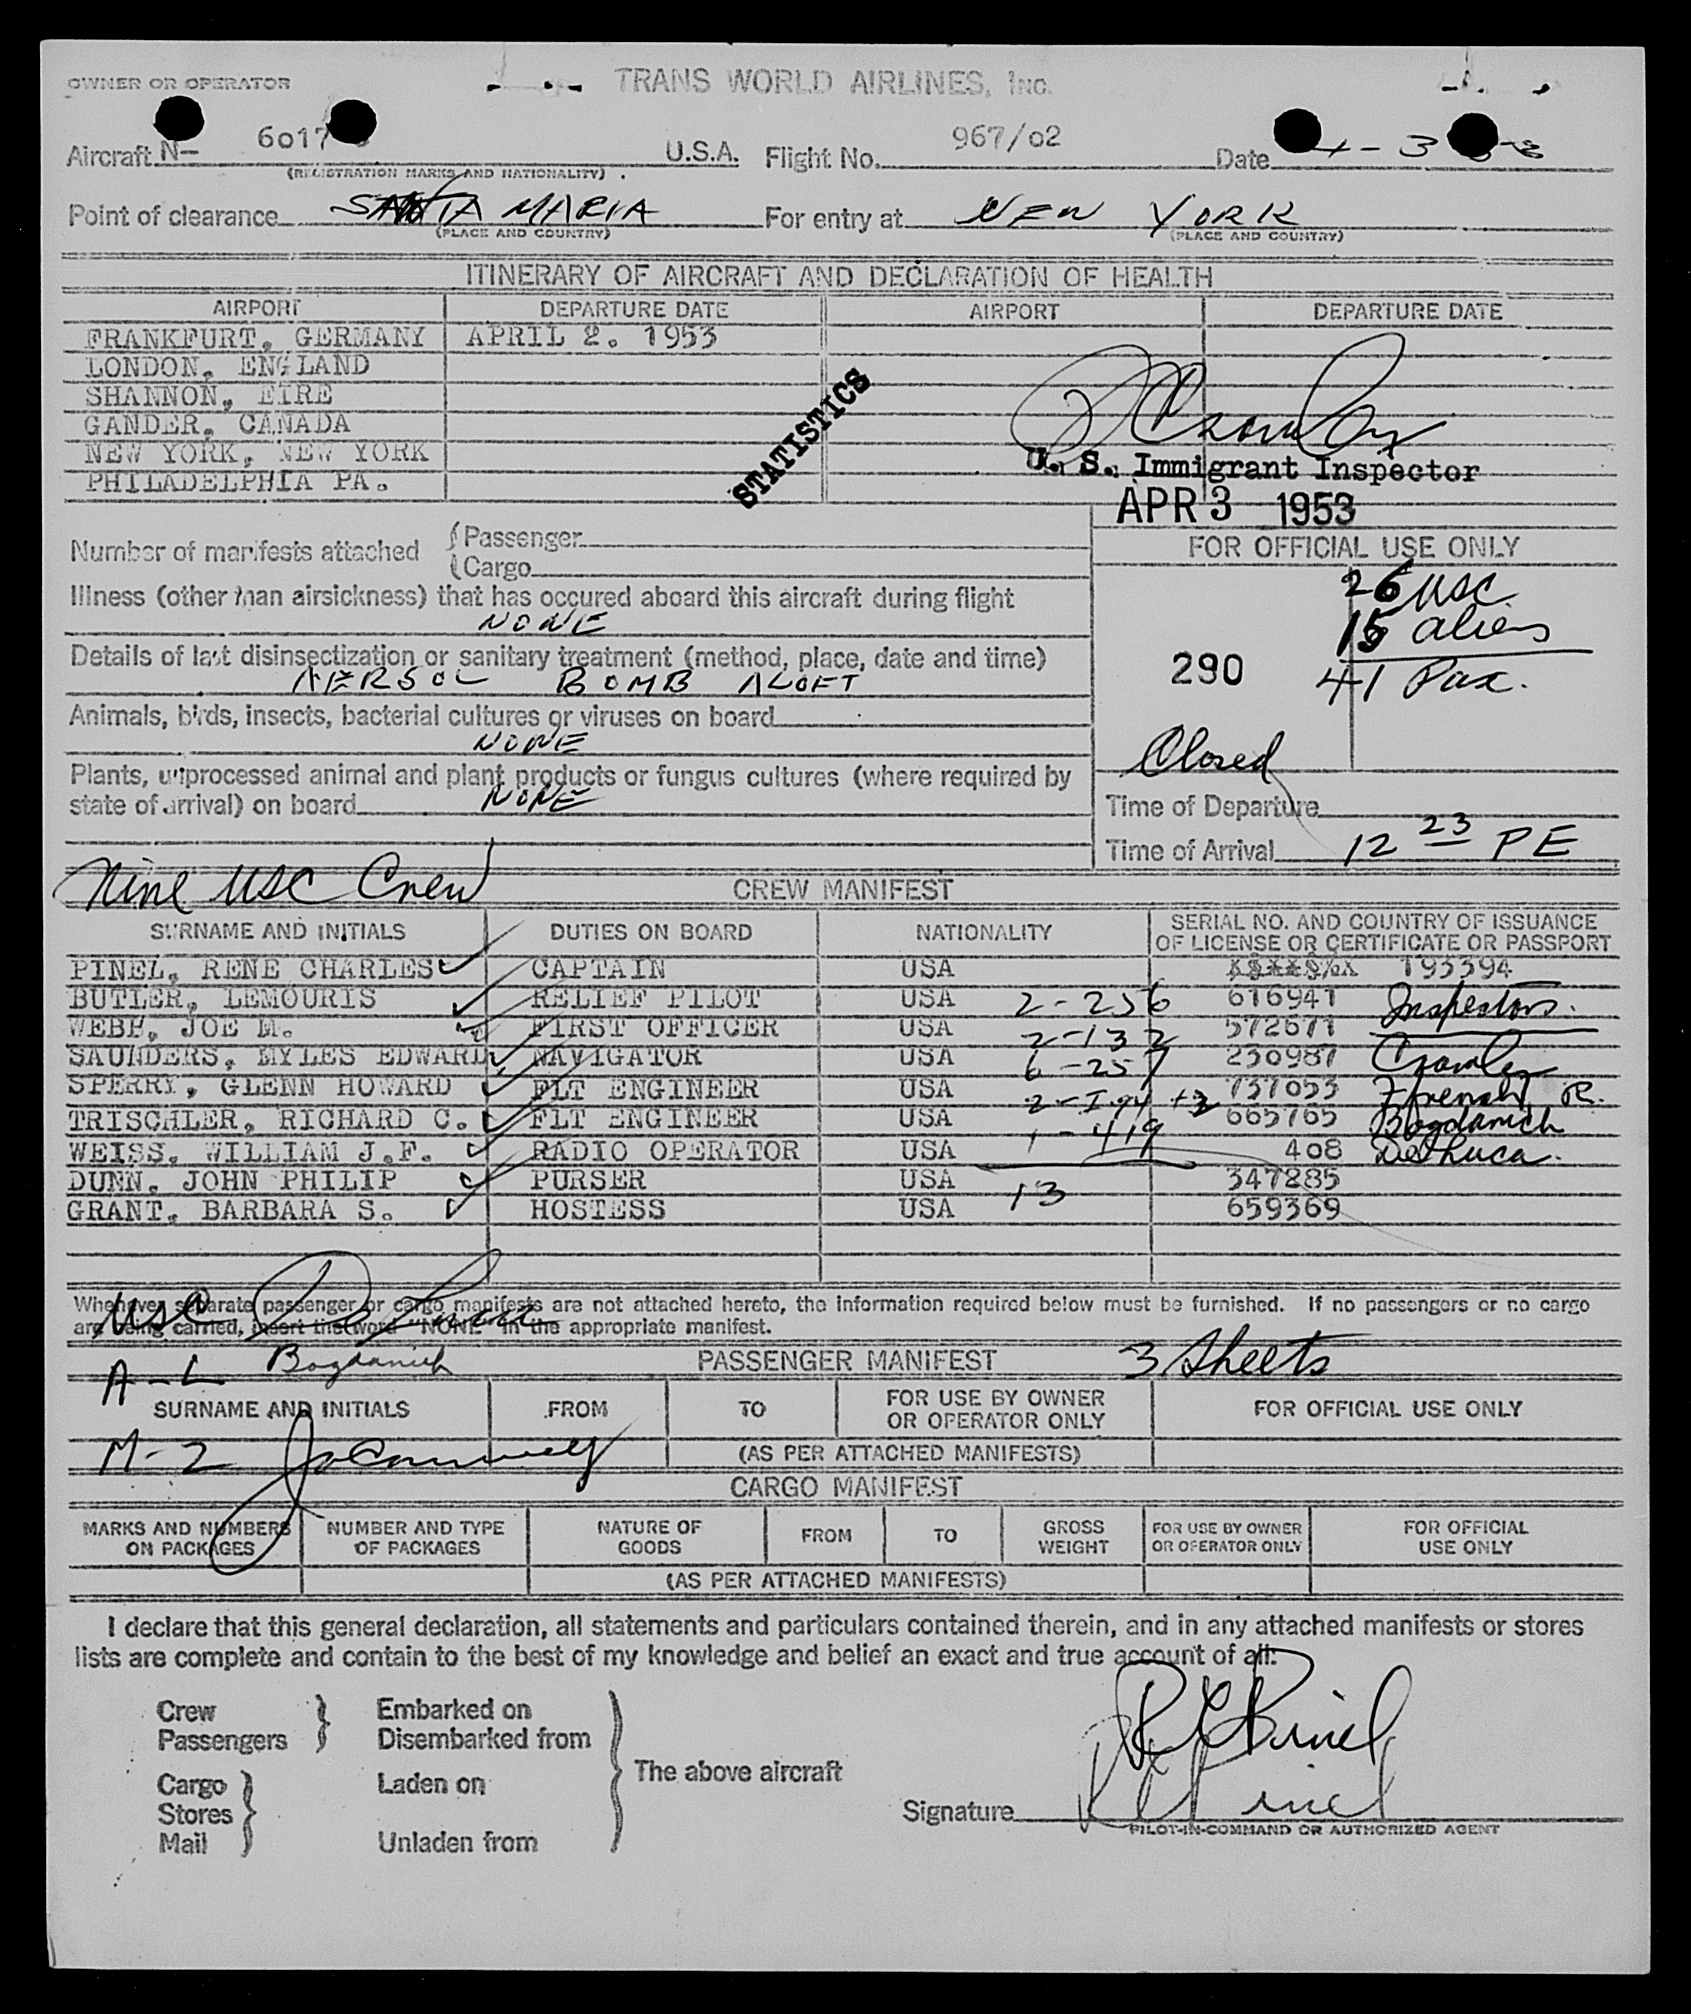 OWNER OR OPERATOR TRANS WORLD AIRLINES, INC.
Aircraft N- 6017 U.S.A. Flight No. 967/02 Date 4-3
(REGISTRATION MARKS AND NATIONALITY)
Point of clearance SANTA MARIA For entry at NEW YORK
(PLACE AND COUNTRY) (PLACE AND COUNTRY)
ITINERARY OF AIRCRAFT AND DECLARATION OF HEALTH
AIRPORT DEPARTURE DATE AIRPORT DEPARTURE DATE
FRANKFURT, GERMANY APRIL 2. 1953
LONDON, ENGLAND
SHANNON, EIRE
GANDER, CANADA
NEW YORK, NEW YORK
PHILADELPHIA PA.
STATISTICS
Crowley
U. S. Immigrant Inspector
APR 3 1953
Number of manifests attached Passenger
Cargo
FOR OFFICIAL USE ONLY
26 USC
15 aliens
290 41 Pax.
Closed
Illness (other than airsickness) that has occured aboard this aircraft during flight
NONE
Details of last disinsectization or sanitary treatment (method, place, date and time)
AERSOL BOMB ALOFT
Animals, birds, insects, bacterial cultures or viruses on board
NONE
Plants, unprocessed animal and plant products or fungus cultures (where required by
state of arrival) on board NONE
Time of Departure
Time of Arrival 12 23 PE
Nine USC Crew CREW MANIFEST
SURNAME AND INITIALS DUTIES ON BOARD NATIONALITY SERIAL NO. AND COUNTRY OF ISSUANCE
OF LICENSE OR CERTIFICATE OR PASSPORT
PINEL, RENE CHARLES CAPTAIN USA 193394
BUTLER, LEMOURIS RELIEF PILOT USA 2-256 616941 Inspectors.
WEBB, JOE M. FIRST OFFICER USA 2-132 572671
SAUNDERS, MYLES EDWARD NAVIGATOR USA 6-257 230987 Crowley
SPERRY, GLENN HOWARD FLT ENGINEER USA 737053 R.
TRISCHLER, RICHARD C. FLT ENGINEER USA 1-419 665765 Bogdanich
WEISS, WILLIAM J.F. RADIO OPERATOR USA 408 DeLuca.
DUNN, JOHN PHILIP PURSER USA 13 347885
GRANT, BARBARA S. HOSTESS USA 659369
Whenever separate passenger or cargo manifests are not attached hereto, the information required below must be furnished. If no passengers or no cargo
are being carried, insert the word "NONE" in the appropriate manifest.
USC
A-L Bogdanich PASSENGER MANIFEST 3 Sheets
SURNAME AND INITIALS FROM TO FOR USE BY OWNER
OR OPERATOR ONLY FOR OFFICIAL USE ONLY
M-Z (AS PER ATTACHED MANIFESTS)
CARGO MANIFEST
MARKS AND NUMBERS
ON PACKAGES NUMBER AND TYPE
OF PACKAGES NATURE OF
GOODS FROM TO GROSS
WEIGHT FOR USE BY OWNER
OR OPERATOR ONLY FOR OFFICIAL
USE ONLY
(AS PER ATTACHED MANIFESTS)
I declare that this general declaration, all statements and particulars contained therein, and in any attached manifests or stores
lists are complete and contain to the best of my knowledge and belief an exact and true account of all:
Crew Embarked on
Passengers Disembarked from
Cargo Laden on The above aircraft
Stores
Mail Unladen from
R C Pinel
Signature R C Pinel
PILOT-IN-COMMAND OR AUTHORIZED AGENT